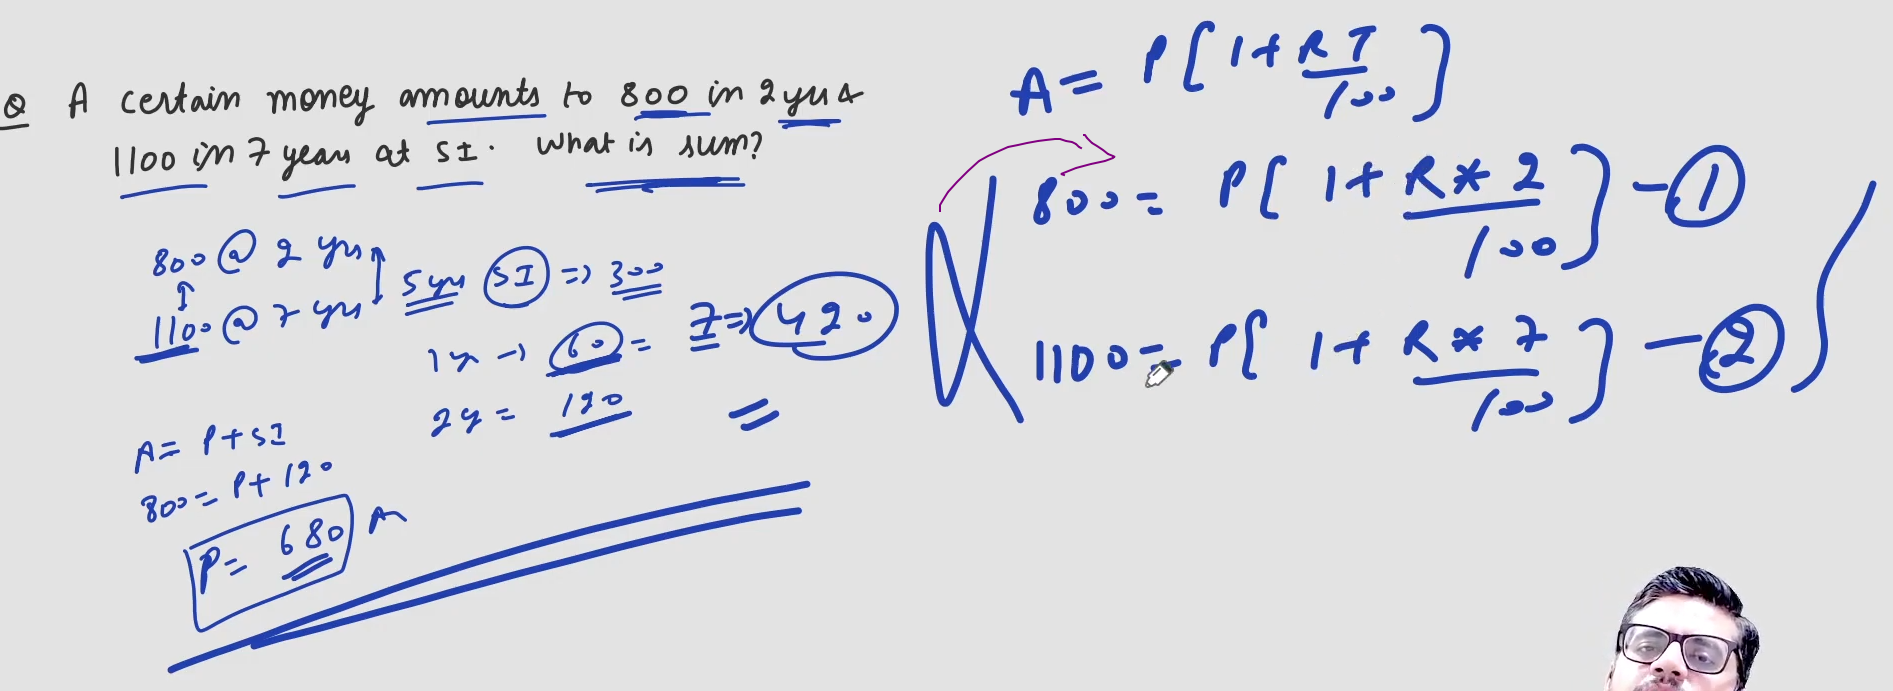 Q A certain money amounts to 800 in 2 yrs &
1100 in 7 years at SI. What is sum?
800 @ 2 yrs
1100 @ 7 yrs
5 yrs SI => 300
1 yr -> 60 = 7 => 420
2 y = 120
=
A = P + SI
800 = P + 120
P = 680 A
A = P [ 1 + RT/100 ]
800 = P [ 1 + R * 2/100 ] - 1
1100 = P [ 1 + R * 7/100 ] - 2